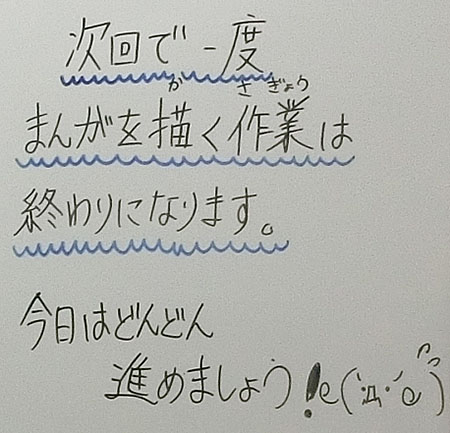 次回で一度
まんがを描く作業は
終わりになります。
今日はどんどん
進めましょう!